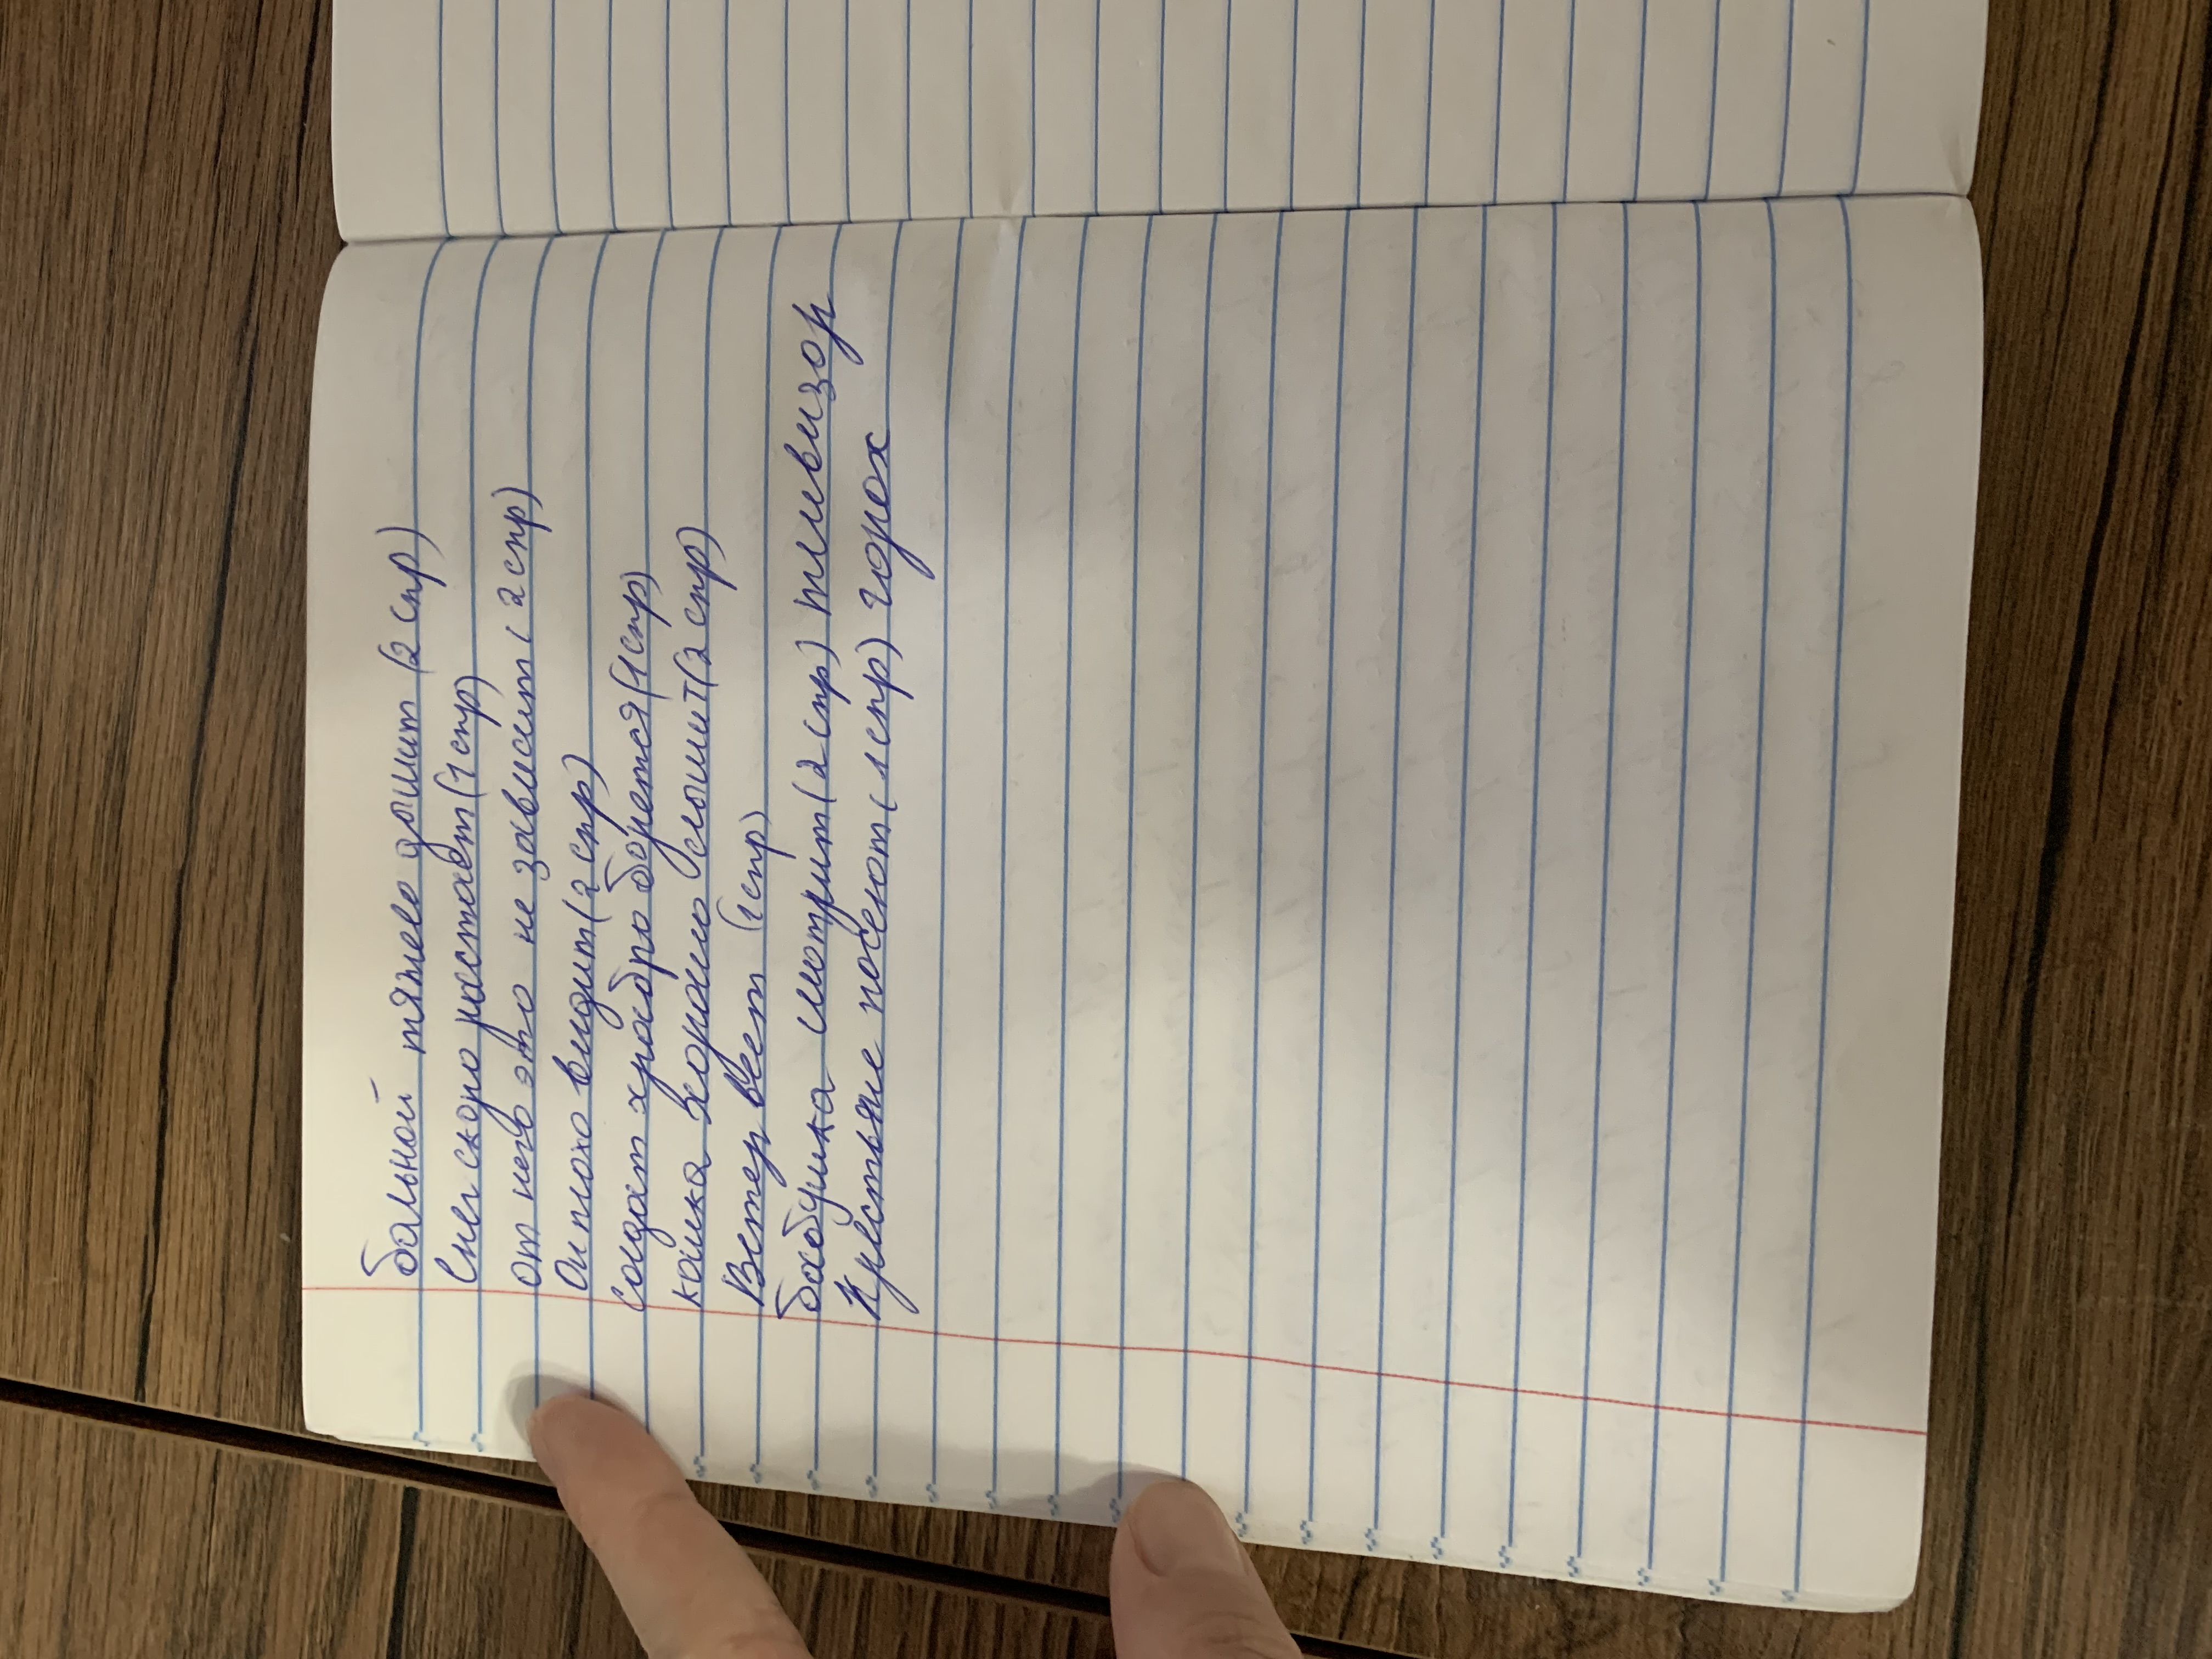 больной тяжело дышит (2 спр)
Снег скоро растает (1 спр)
от него это не зависит (2 спр)
Он плохо видит (2 спр)
Солдат храбро борется (1 спр)
кошка хорошо слышит (2 спр)
Ветер веет (1 спр)
бабушка смотрит (2 спр) телевизор
Крестьяне посеют (1 спр) горох